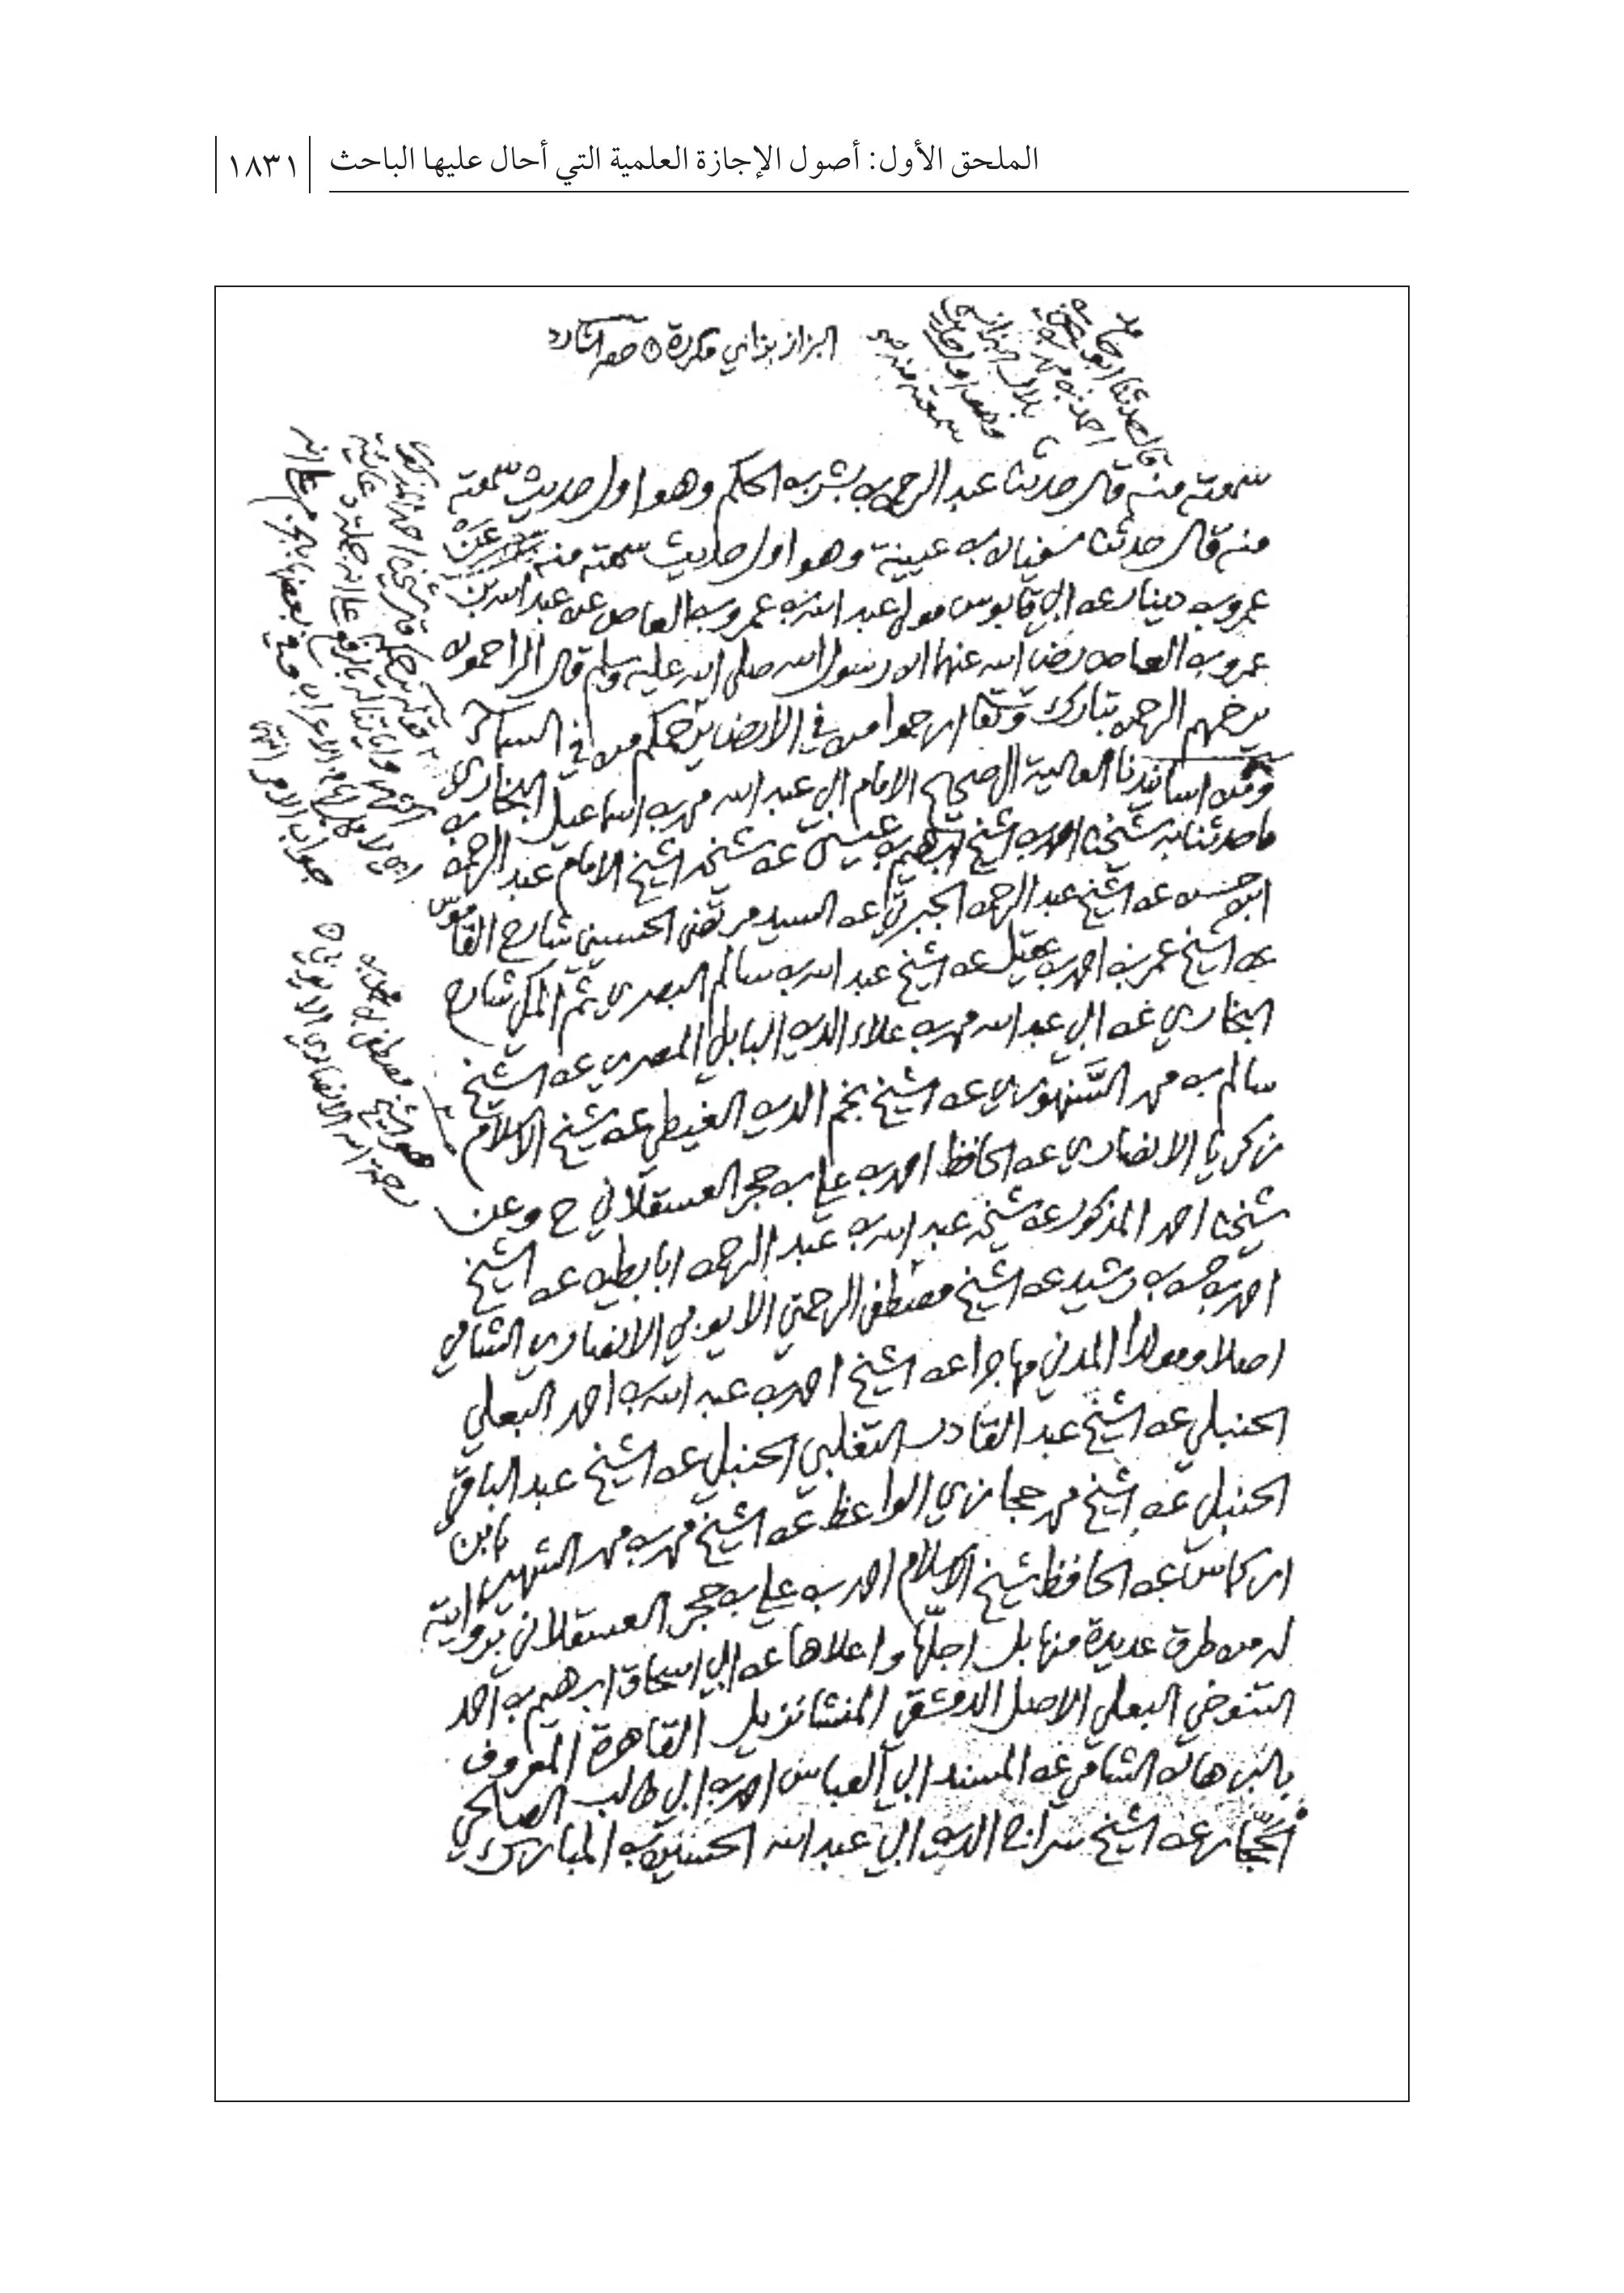 الملحق الأول: أصول الإجازة العلمية التي أحال عليها الباحث
١٨٣١
البزاز بزائي مكررة
قال حدثنا ابو حامد
احمد بن محمد بن
بلال البزاز
وهو اول حديث
سمعته منه صح
سمعته منه قال حدثنا عبد الرحمن بن بشر بن الحكم وهو اول حديث سمعته
منه قال حدثنا سفيان بن عيينة وهو اول حديث سمعته منه عن
عمرو بن دينار عن ابي قابوس مولى عبد الله بن عمرو بن العاص عن عبد الله بن
عمرو بن العاص رضي الله عنهما ان رسول الله صلى الله عليه وسلم قال الراحمون
يرحمهم الرحمن تبارك وتعالى ارحموا من في الارض يرحمكم من في السماء
ومن اسانيدنا العالية الى صحيح الامام ابي عبد الله محمد بن اسماعيل البخاري
ما حدثنا به شيخنا احمد بن الشيخ ابراهيم بن عيسى عن شيخه الشيخ الامام عبد الرحمن بن
حسن عن الشيخ عبد الرحمن الجبرتي عن السيد مرتضى الحسيني شارح القاموس
عن الشيخ عمر بن احمد بن عقيل عن الشيخ عبد الله بن سالم البصري ثم المكي شارح
البخاري عن ابي عبد الله محمد بن علاء الدين البابلي المصري عن الشيخ
سالم بن محمد السنهوري عن الشيخ نجم الدين الغيطي عن شيخ الاسلام
زكريا الانصاري عن الحافظ احمد بن علي بن حجر العسقلاني ح وعن
شيخنا احمد المذكور عن شيخه عبد الله بن عبد الرحمن ابابطين عن الشيخ
احمد بن حسن بن رشيد عن الشيخ مصطفى الرحمتي الايوبي الانصاري الشامي
اصلا ومولدا المدني مهاجرا عن الشيخ احمد بن عبد الله بن احمد البعلي
الحنبلي عن الشيخ عبد القادر التغلبي الحنبلي عن الشيخ عبد الباقي
الحنبلي عن الشيخ محمد حجازي الواعظ عن الشيخ محمد بن محمد الشهير بابن
اركماس عن الحافظ شيخ الاسلام احمد بن علي بن حجر العسقلاني بروايته
له من طرق عديدة منها بل اجلها واعلاها عن ابي اسحاق ابرهيم بن احمد
التنوخي البعلي الاصل الدمشقي المنشا نزيل القاهرة المعروف
بالبرهان الشامي عن المسند ابي العباس احمد بن ابي طالب الصالحي
الحجار عن الشيخ سراج الدين ابي عبد الله الحسين بن المبارك
قوله يرحمكم قال شيخنا احمد
جواب الامر انتهى
هو الشيخ مصطفى بن محمد بن
رحمة الله الانصاري الايوبي